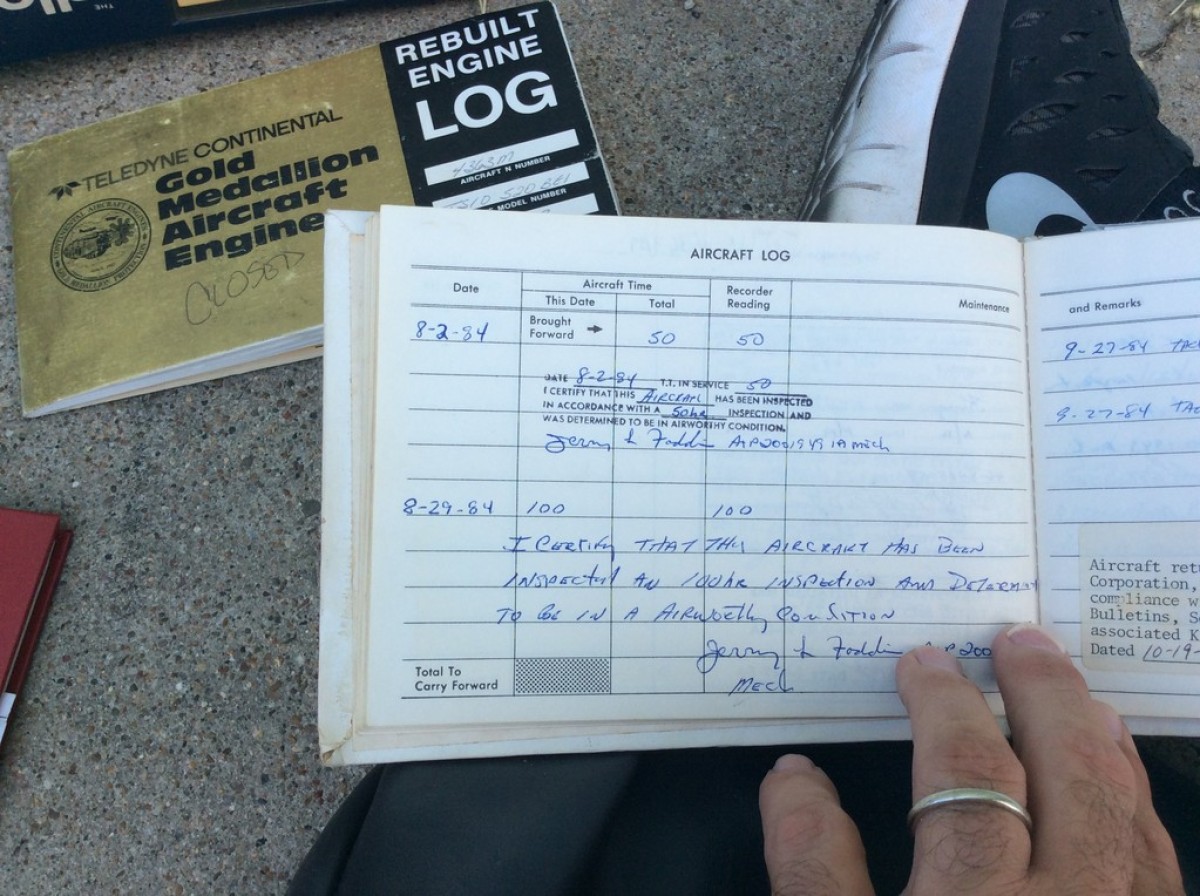 THE
REBUILT
ENGINE
LOG
TELEDYNE CONTINENTAL
Gold
Medallion
Aircraft
Engine
CLOSED
4363M
AIRCRAFT N NUMBER
TSIO 520 BE1
MODEL NUMBER
AIRCRAFT LOG
Date
Aircraft Time
This Date
Total
Recorder
Reading
Maintenance
and Remarks
8-2-84
Brought
Forward
50
50
DATE 8-2-84 T.T. IN SERVICE 50
I CERTIFY THAT THIS AIRCRAFT HAS BEEN INSPECTED
IN ACCORDANCE WITH A 50hr INSPECTION AND
WAS DETERMINED TO BE IN AIRWORTHY CONDITION.
Jerry L mech
8-29-84 100 100
I CERTIFY THAT THIS AIRCRAFT HAS BEEN
INSPECTED AN 100HR INSPECTION AND
TO BE IN A AIRWORTHY CONDITION
Jerry L
Mech
Total To
Carry Forward
9-27-84
9-27-84
Aircraft
Corporation,
compliance
Bulletins,
associated
Dated 10-19-